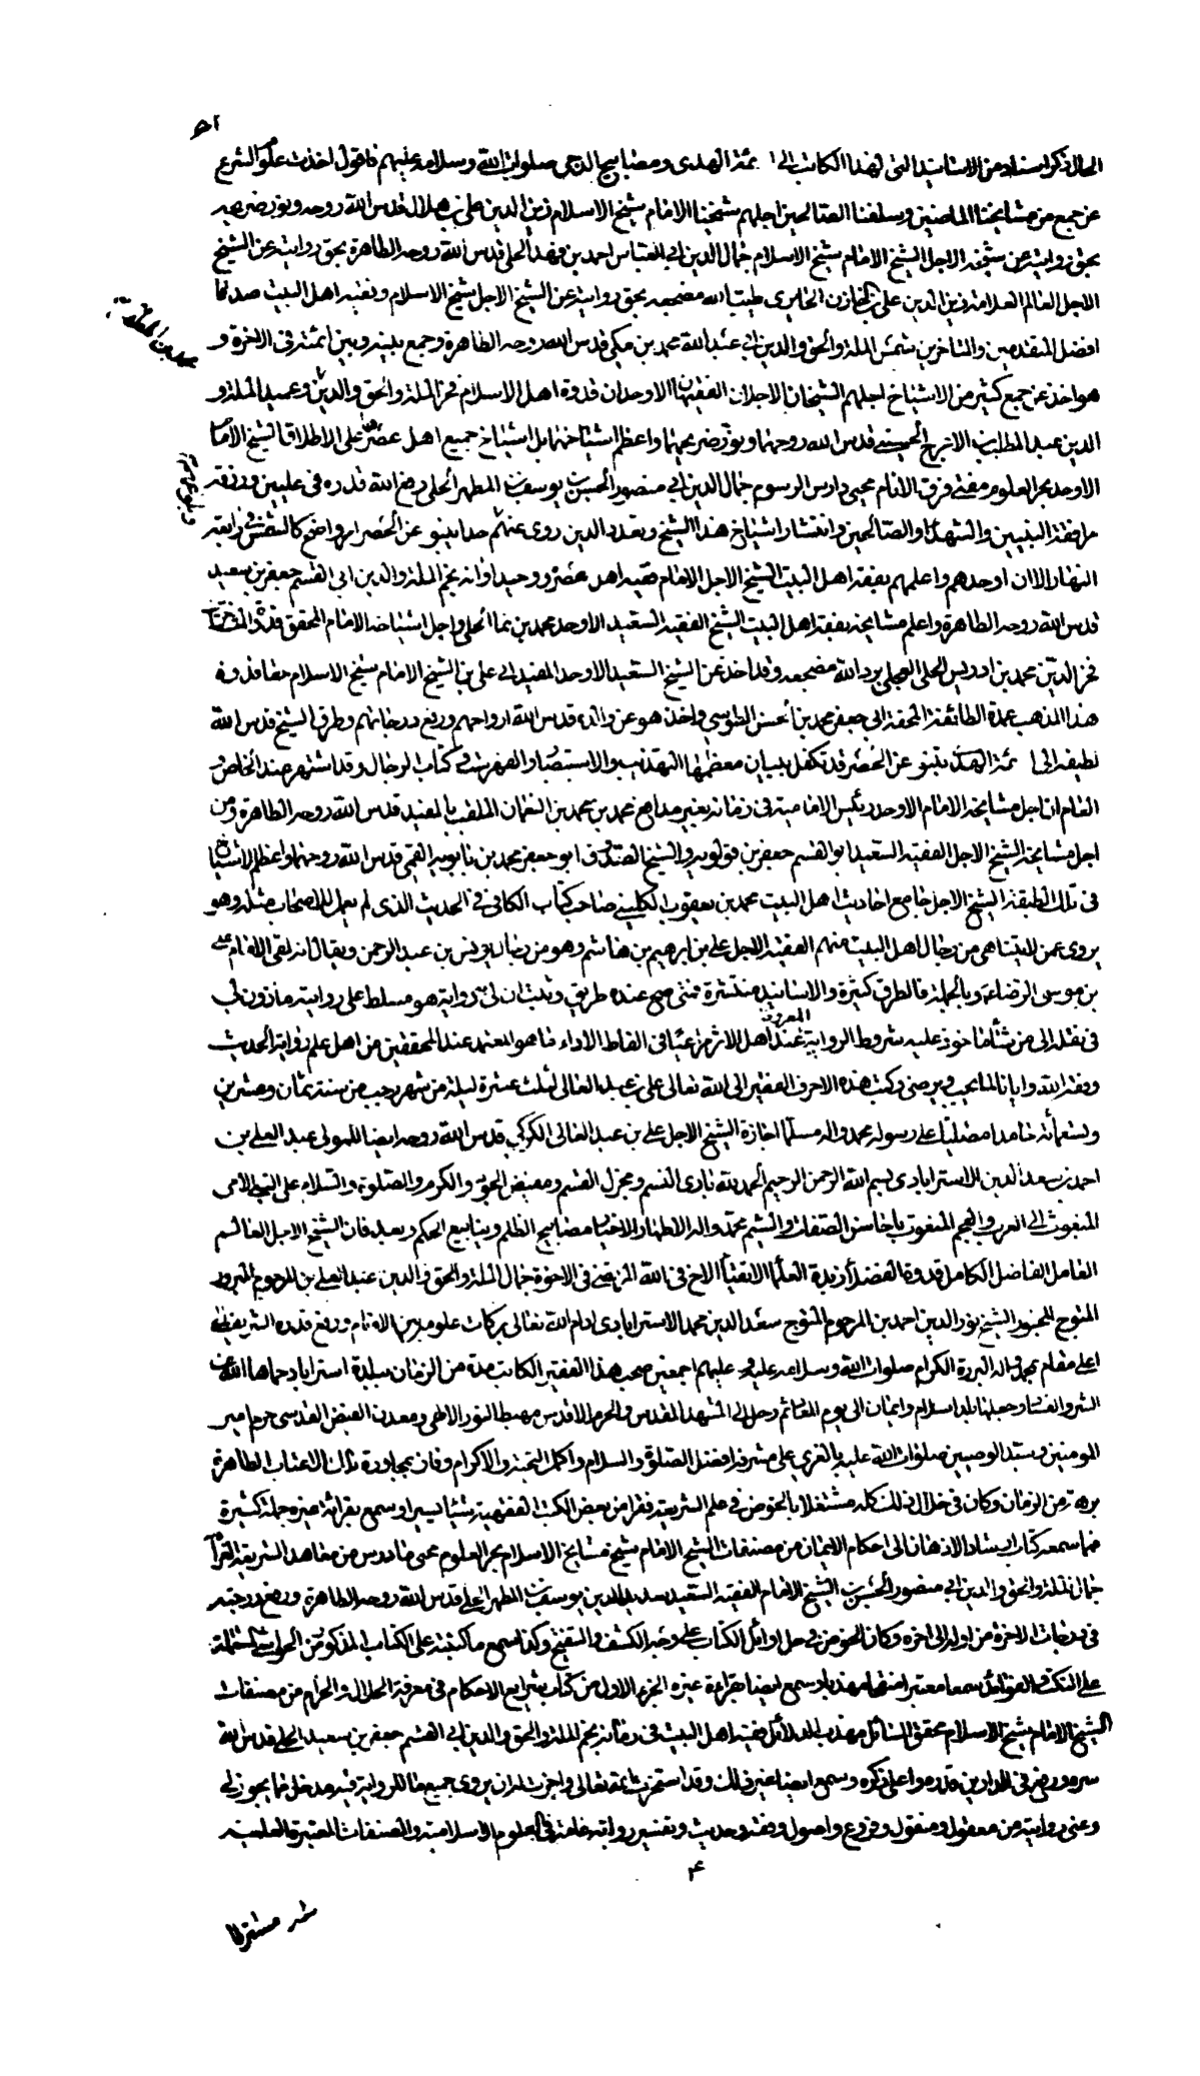 الحال ذكر اسناد من الاسانيد التى لهذا الكاتب الى ائمة الهدى ومصابيح الدجى صلوات الله وسلامه عليهم فاقول اخذت علوم الشرع
عن جمع من مشايخنا الماضين وسلفنا الصالحين اجلهم شيخنا الامام شيخ الاسلام زين الدين على بن هلال قدس الله روحه ونور ضريحه
بحق روايته عن شيخه الاجل الشيخ الامام شيخ الاسلام جمال الدين ابى العباس احمد بن فهد الحلى قدس الله روحه الطاهرة بحق روايته عن الشيخ
الاجل العالم العلامة زين الدين على بن الخازن الحايرى طيب الله مضجعه بحق روايته عن الشيخ الاجل شيخ الاسلام وفقيه اهل البيت صدقا
افضل المتقدمين والمتاخرين شمس الملة والحق والدين ابى عبد الله محمد بن مكى قدس الله روحه الطاهرة وجمع بينه وبين ائمته فى الاخرة و
هو اخذ عن جمع كثير من الاشياخ اجلهم الشيخان الاجلان الفقيهان الاوحدان قدوة اهل الاسلام فخر الملة والحق والدين وعميد الملة و
الدين عبد المطلب بن الاعرج الحسينى قدس الله روحهما ونور ضريحهما واعظم اشياخهما بل اشياخ جميع اهل عصره على الاطلاق الشيخ الامام
الاوحد بحر العلوم مفتى فرق الانام محيى دارس الرسوم جمال الدين ابى منصور الحسن بن يوسف بن المطهر الحلى رفع الله قدره فى عليين ورزقه
مرافقة النبيين والشهداء والصالحين وانتشار اشياخ هذا الشيخ وتعدد الذين روى عنهم حدا ينبو عن الحصر امر واضح كالشمس فى رابعة
النهار الا ان اوحدهم واعلمهم بفقه اهل البيت الشيخ الاجل الامام فقيه اهل عصره ووحيد اوانه نجم الملة والدين ابى القسم جعفر بن سعيد
قدس الله روحه الطاهرة واعلم مشايخه بفقه اهل البيت الشيخ الفقيه السعيد الاوحد محمد بن نما الحلى واجل اشياخه الامام المحقق قدوة المتاخرين
فخر الدين محمد بن ادريس الحلى العجلى برد الله مضجعه وقد اخذ عن الشيخ السعيد الاوحد المفيد ابى على بن الشيخ الامام شيخ الاسلام حقا قدوة
هذا المذهب عمدة الطائفة المحقة ابى جعفر محمد بن الحسن الطوسى واخذ هو عن والده قدس الله ارواحهم ورفع درجاتهم وطرق الشيخ قدس الله
لطيفه الى ائمة الهدى تنبو عن الحصر قد تكفل ببيان معظمها التهذيب والاستبصار والفهرست وكتاب الرجال وقد اشتهر عند الخاص و
العام ان اجل مشايخه الامام الاوحد رئيس الامامية فى زمانه بغير مدافع محمد بن محمد بن النعمان الملقب بالمفيد قدس الله روحه الطاهرة ومن
اجل مشايخه الشيخ الاجل الفقيه السعيد ابو القسم جعفر بن قولويه والشيخ الصدوق ابو جعفر محمد بن بابويه القمى قدس الله روحهما واعظم الاشياخ
فى تلك الطبقة الشيخ الاجل جامع احاديث اهل البيت محمد بن يعقوب الكلينى صاحب كتاب الكافى فى الحديث الذى لم يعمل للاصحاب مثله وهو
يروى عمن لا يتناهى من رجال اهل البيت منهم الفقيه الاجل على بن ابرهيم بن هاشم وهو من رجال يونس بن عبد الرحمن ويقال انه لقى الامام على
بن موسى الرضا ع وبالجملة فالطرق كثيرة والاسانيد منتشرة فمتى صح عنده طريق وثبت ان لى به رواية هو مسلط على روايته ماذون لى
فى نقله الى من شاء ماخوذ عليه شروط الرواية المعروفة عند اهل الاثر مراعيا فى الفاظ الاداء ما هو المعتمد عند المحققين من اهل علم رواية الحديث
وفقه الله وايانا لما يحب ويرضى وكتب هذه الاحرف الفقير الى الله تعالى على بن عبد العالى لثلث عشرة ليلة من شهر رجب من سنة ثمان وعشرين
وتسعمأة حامدا مصليا على رسوله محمد واله مسلما اجازة الشيخ الاجل على بن عبد العالى الكركى قدس الله روحه ايضا للمولى عبد العلى بن
احمد بن سعد الدين الاسترابادى بسم الله الرحمن الرحيم الحمد لله بارى النسم ومجزل القسم ومفيض الجود والكرم والصلوة والسلام على النبى الامى
المبعوث الى العرب والعجم المنعوت باحاسن الصفات والشيم محمد واله الاطهار الاخيار مصابيح الظلم وينابيع الحكم وبعد فان الشيخ الاجل العالم
العامل الفاضل الكامل قدوة الفضلاء زبدة العلماء الاتقياء الاخ فى الله المرتضى فى الاخوة جمال الملة والحق والدين عبد العلى بن المرحوم المبرور
المتوج المحبور الشيخ نور الدين احمد بن المرحوم المتوج سعد الدين محمد الاسترابادى ادام الله تعالى بركات علومه بين الانام ورفع قدره الشريف الى
اعلى مقام بمحمد واله البررة الكرام صلوات الله وسلامه عليه وعليهم اجمعين صحب هذا الفقير الكاتب مدة من الزمان ببلدة استراباد حماها الله من
الشر والفساد وجعلها بلد اسلام وايمان الى يوم المعاد ثم رحل الى المشهد المقدس والحرم الاقدس مهبط النور الالهى ومعدن الفيض القدسى حرم امير
المومنين وسيد الوصيين صلوات الله عليه بالغرى على مشرفه افضل الصلوة والسلام واكمل التحية والاكرام وفاز بمجاورة تلك الاعتاب الطاهرة
برهة من الزمان وكان فى خلال ذلك كله مشتغلا بالخوض فى علم الشريعة فقرا من بعض الكتب الفقهية شيئا يسيرا وسمع بقرائة غيره جملة كثيرة
فما سمعه كتاب ارشاد الاذهان الى احكام الايمان من مصنفات الشيخ الامام شيخ مشايخ الاسلام بحر العلوم محيى ما درس من معاهد الشريعة الغراء
جمال الملة والحق والدين ابى منصور الحسن بن الشيخ الامام الفقيه السعيد سديد الدين يوسف بن المطهر الحلى قدس الله روحه الطاهرة ورفع درجته
فى درجات الاخرة من اوله الى اخره وكان الخوض فى حل اوائل الكتاب على وجه الكشف والتنقيح وكذا سمع ما كتبته على الكتاب المذكور من الحواشى المشتملة
على النكت والفوائد سمعا معتبرا منقحا مهذبا وسمع ايضا بقراءة غيره الجزء الاول من كتاب شرايع الاحكام فى معرفة الحلال والحرام من مصنفات
الشيخ الامام شيخ الاسلام محقق المسائل مهذب الدلائل فقيه اهل البيت فى زمانه نجم الملة والحق والدين ابى القسم جعفر بن سعيد الحلى قدس الله
سره ورفع فى الدارين قدره واعلى ذكره وسمع ايضا غير ذلك وقد استخرت الله تعالى واجزت له ان يروى جميع ما للرواية فيه مدخل مما يجوز لى
وعنى روايته من معقول ومنقول وفروع واصول وفقه وحديث وتفسير رواية عامة فى العلوم الاسلامية والمصنفات المعتبرة العلمية